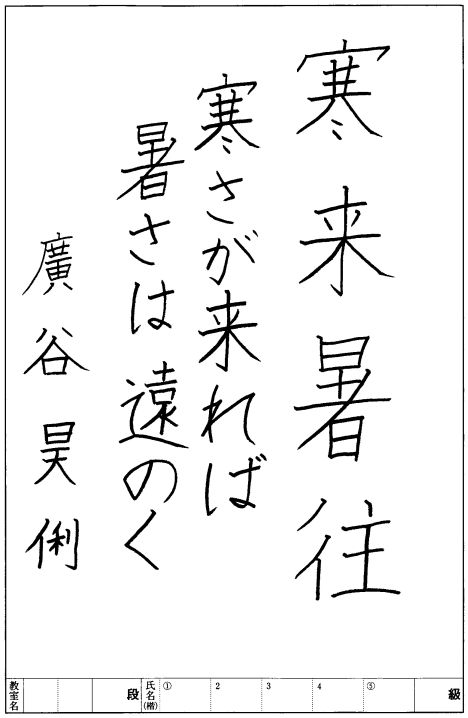 寒来暑往
寒さが来れば
暑さは遠のく
廣谷昊俐
教室名
段
氏名(楷)
① 2 3 4 ⑤
級